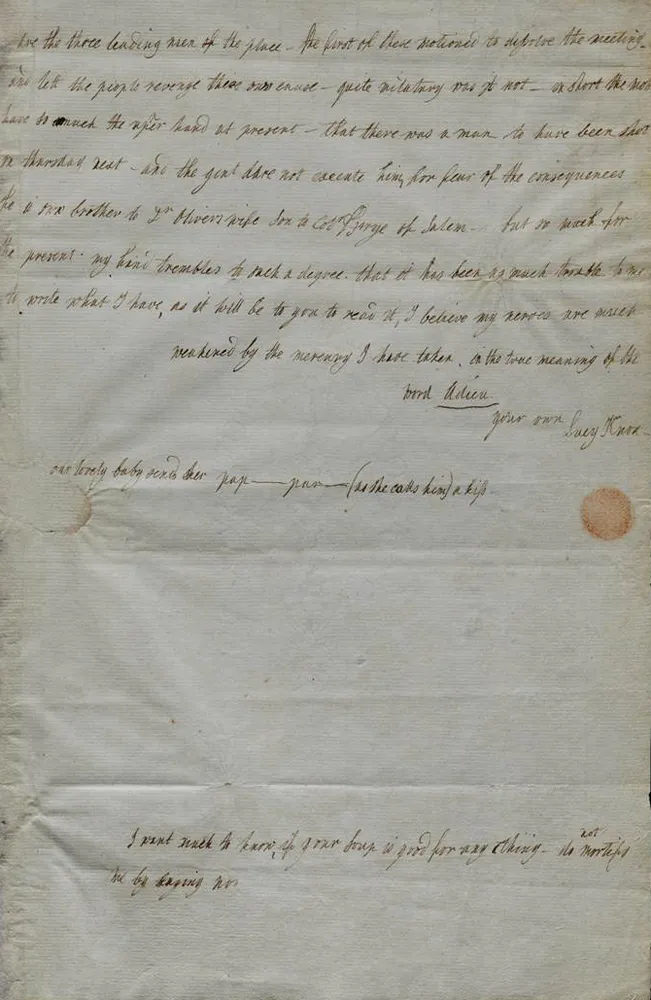 are the three leading men of the place – the first of these motioned to desolve the meeting –
and lett the people revenge these own cause – quite military was it not – in short the mob
have so much the uper hand at present – that there was a man to have been shot
on thursday next – and the gent dare not execute him, for fear of the consequences
he is own brother to Dr Olivers wife son to Coln of Salem – but so much for
the present – my hand trembles to such a degree that it has been as much trouble to me
to write what I have, as it will be to you to read it, I believe my nerves are much
weakened by the mercury I have taken, in the true meaning of the
word Adieu
your own Lucy Knox –
our lovely baby sends her pap — par — (as she calls him) a kiss
I want much to know, if your Soup is good for any thing – do not mortify
me by saying no